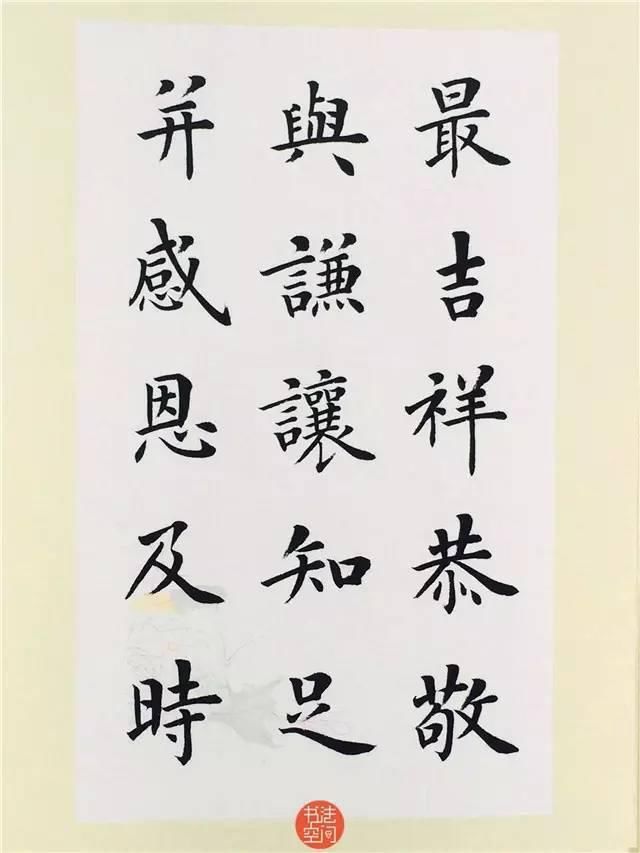 最吉祥恭敬
與謙讓知足
并感恩及時
书法
空间